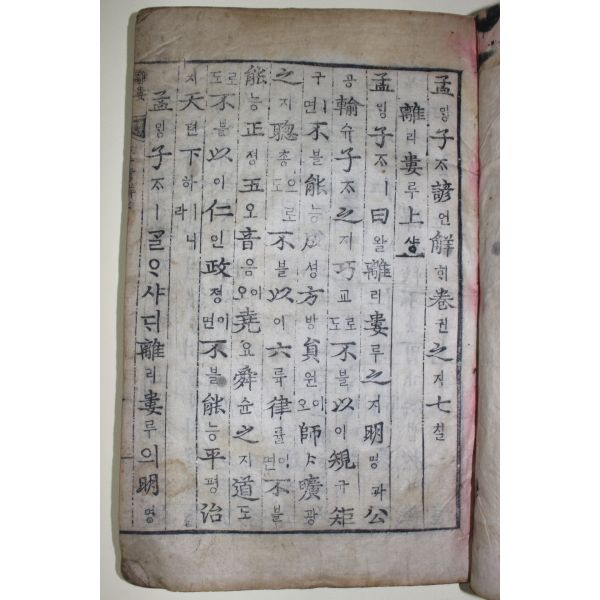 孟밍子ᄌᆞ諺언解ᄒᆡ卷권之지七칠
離리婁루上샹
孟밍子ᄌᆞㅣ曰왈離리婁루之지明명과公
공輸슈子ᄌᆞ之지巧교로도不블以이規규矩
구ㅣ면不블能능成셩方방員원이오師ᄉᆞ曠광
之지聰총으로도不블以이六륙律률이면不블
能능正졍五오音음이오堯요舜슌之지道도
로도不블以이仁인政졍이면不블能능平평治
치天텬下하ㅣ니라
孟밍子ᄌᆞㅣᄀᆞᆯᄋᆞ샤ᄃᆡ離리婁루의明명
離婁